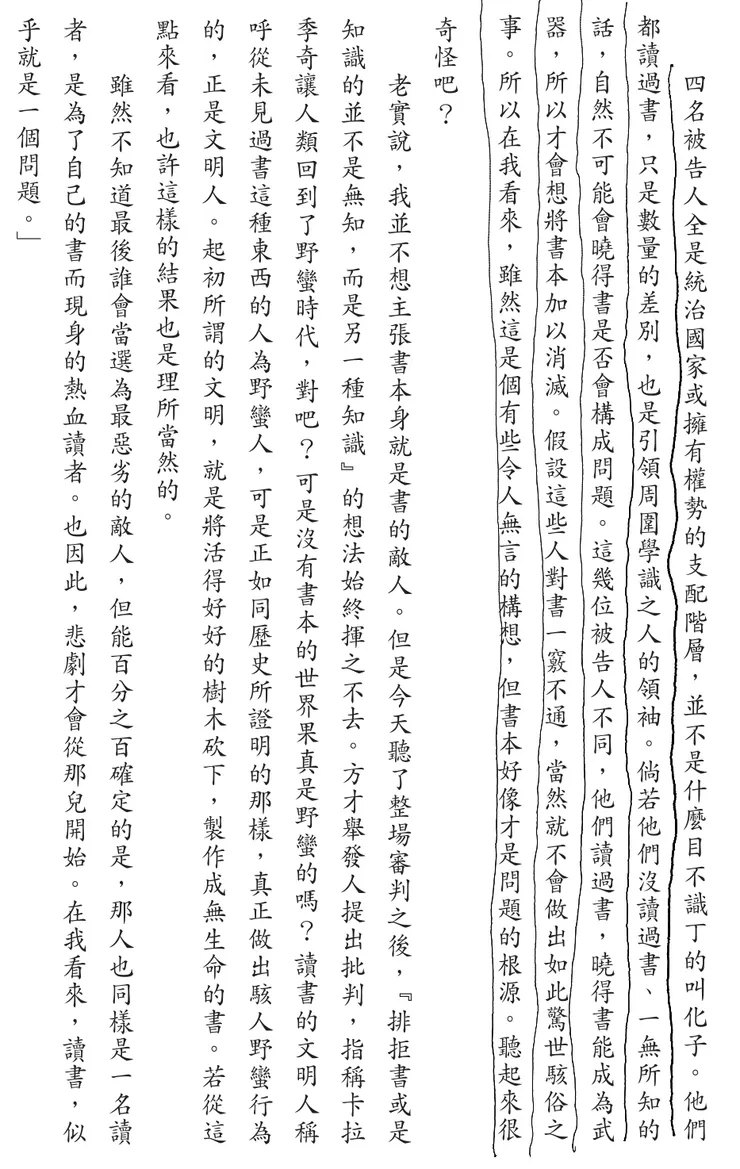 四名被告人全是統治國家或擁有權勢的支配階層，並不是什麼目不識丁的叫化子。他們
都讀過書，只是數量的差別，也是引領周圍學識之人的領袖。倘若他們沒讀過書、一無所知的
話，自然不可能會曉得書是否會構成問題。這幾位被告人不同，他們讀過書，曉得書能成為武
器，所以才會想將書本加以消滅。假設這些人對書一竅不通，當然就不會做出如此驚世駭俗之
事。所以在我看來，雖然這是個有些令人無言的構想，但書本好像才是問題的根源。聽起來很
奇怪吧？
老實說，我並不想主張書本身就是書的敵人。但是今天聽了整場審判之後，『排拒書或是
知識的並不是無知，而是另一種知識』的想法始終揮之不去。方才舉發人提出批判，指稱卡拉
季奇讓人類回到了野蠻時代，對吧？可是沒有書本的世界果真是野蠻的嗎？讀書的文明人稱
呼從未見過書這種東西的人為野蠻人，可是正如同歷史所證明的那樣，真正做出駭人野蠻行為
的，正是文明人。起初所謂的文明，就是將活得好好的樹木砍下，製作成無生命的書。若從這
點來看，也許這樣的結果也是理所當然的。
雖然不知道最後誰會當選為最惡劣的敵人，但能百分之百確定的是，那人也同樣是一名讀
者，是為了自己的書而現身的熱血讀者。也因此，悲劇才會從那兒開始。在我看來，讀書，似
乎就是一個問題。」